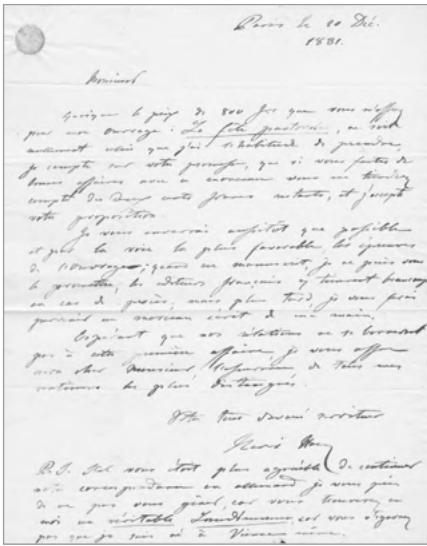 Paris le 20 Déc.
1881.
Monsieur
Quoique le prix de 800 frs que vous m'offrez
pour mon ouvrage: La fête, ne soit
nullement celui que j'ai l'habitude de prendre,
je compte sur votre promesse, que si vous faites de
bonnes affaires avec ce morceau vous me tiendrez
compte des deux cents francs restants, et j'accepte
votre proposition.
Je vous enverrai aussitôt que possible
et par la voie la plus favorable les épreuves
de l'ouvrage; quant au manuscrit, je ne puis vous
le promettre, les éditeurs français y tiennent beaucoup
en cas de procès; mais plus tard, je vous ferai
un morceau écrit de ma main.
Espérant que nos relations ne se borneront
pas à cette première affaire, je vous offre
mon cher Monsieur, l'expression de tous mes
sentiments les plus distingués.
Votre tout dévoué serviteur
P.S. S'il vous était plus agréable de continuer
notre correspondance en allemand je vous prie
de ne pas vous gêner, car vous trouverez en
moi un véritable Landsmann, car vous
pas que je suis né à Vienne même.